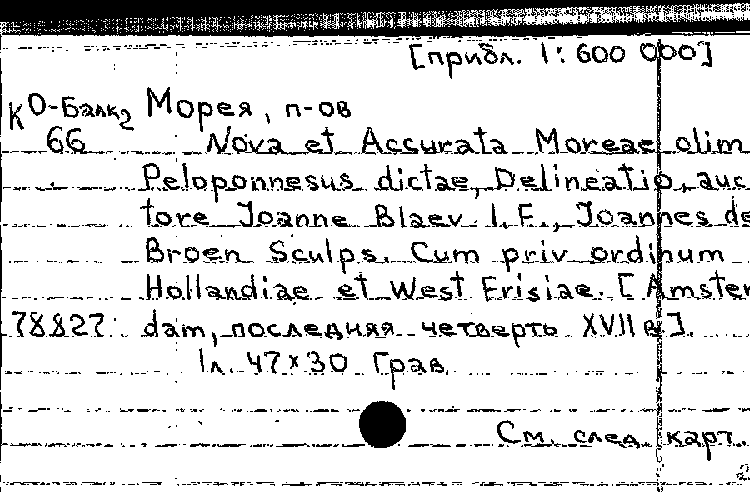 [прибл. 1:600 000]
К О-Балк2 Морея, п-ов
66 Nova et Accurata Moreae olim
Peloponnesus dictae, Delineatio, auc
tore Joanne Blaev I.F., Joannes de
Broen Sculps. Cum priv ordinum
Hollandiae et West Frisiae. [Amster
78827 dam, последняя четверть XVII в].
1л. 47×30 Грав.
См. след. карт.